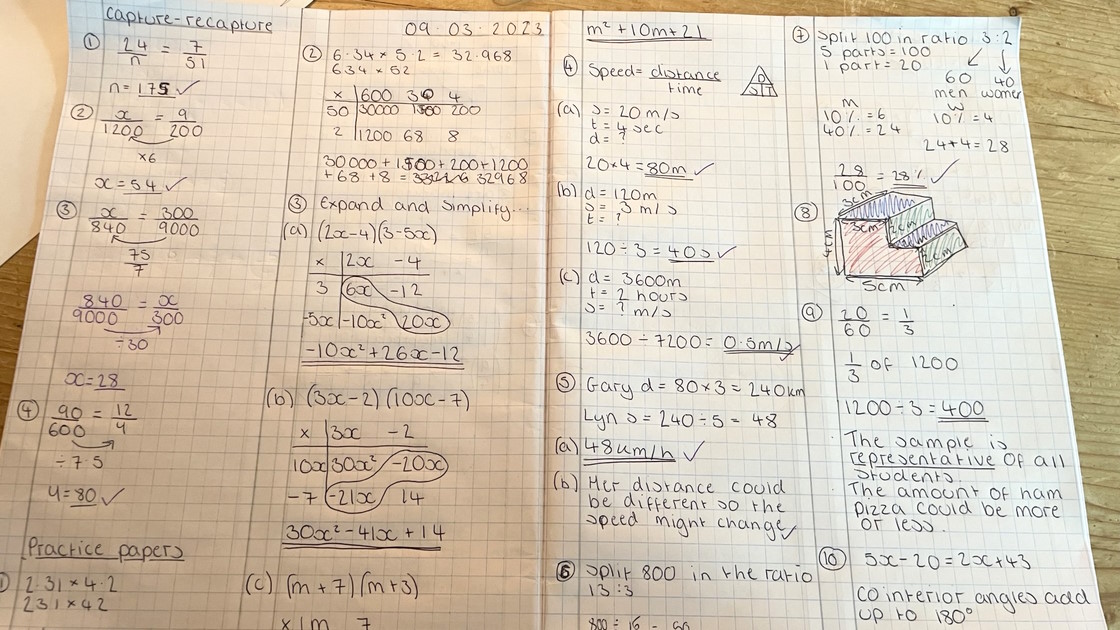 capture-recapture
① 24/n = 7/51
n = 175 ✓
② x/1200 = 9/200
×6
x = 54 ✓
③ x/840 = 300/9000
75/7
840/9000 = x/300
÷30
x = 28
④ 90/600 = 12/y
÷7.5
y = 80 ✓
Practice papers
① 2.31 × 4.2
231 × 42
09.03.2023
② 6.34 × 5.2 = 32.968
634 × 52
× 600 30 4
50 30000 1500 200
2 1200 68 8
30000 + 1500 + 200 + 1200
+ 68 + 8 = 32968
③ Expand and simplify...
(a) (2x-4)(3-5x)
× 2x -4
3 6x -12
-5x -10x² 20x
-10x² + 26x - 12
(b) (3x-2)(10x-7)
× 3x -2
10x 30x² -20x
-7 -21x 14
30x² - 41x + 14
(c) (m+7)(m+3)
× m 7
m² + 10m + 21
④ Speed = distance/time
D
S T
(a) s = 20 m/s
t = 4 sec
d = ?
20 × 4 = 80m ✓
(b) d = 120m
s = 3 m/s
t = ?
120 ÷ 3 = 40s ✓
(c) d = 3600m
t = 2 hours
s = ? m/s
3600 ÷ 7200 = 0.5m/s ✓
⑤ Gary d = 80 × 3 = 240km
Lyn s = 240 ÷ 5 = 48
(a) 48km/h ✓
(b) Her distance could
be different so the
speed might change ✓
⑥ split 800 in the ratio
13:3
800 ÷ 16 =
⑦ Split 100 in ratio 3:2
5 parts = 100
1 part = 20
60 40
men women
M W
10% = 6 10% = 4
40% = 24
24 + 4 = 28
28/100 = 28% ✓
⑧ 3cm
3cm
2cm
4cm
2cm
5cm
⑨ 20/60 = 1/3
1/3 of 1200
1200 ÷ 3 = 400
The sample is
representative of all
students.
The amount of ham
pizza could be more
or less.
⑩ 5x - 20 = 2x + 43
Co interior angles add
up to 180°